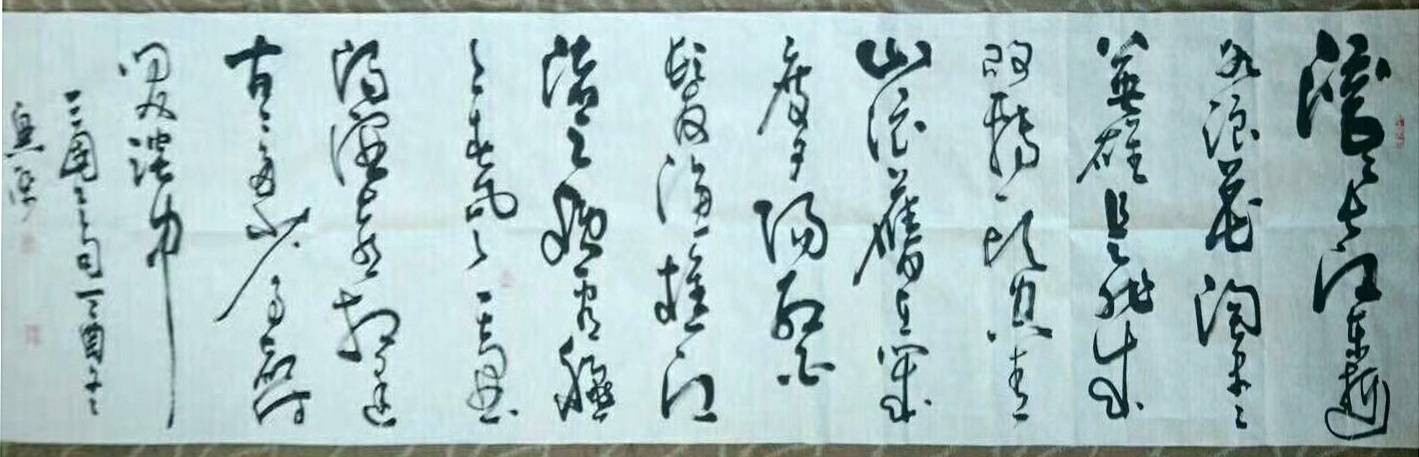 滚滚长江东逝
水浪花淘尽
英雄是非成
败转头空青
山依舊在幾
度夕阳红白
髮渔樵江
渚上惯看秋
月春风一壶
浊酒喜相逢
古今多少事都付
笑谈中
三国之句丁酉年